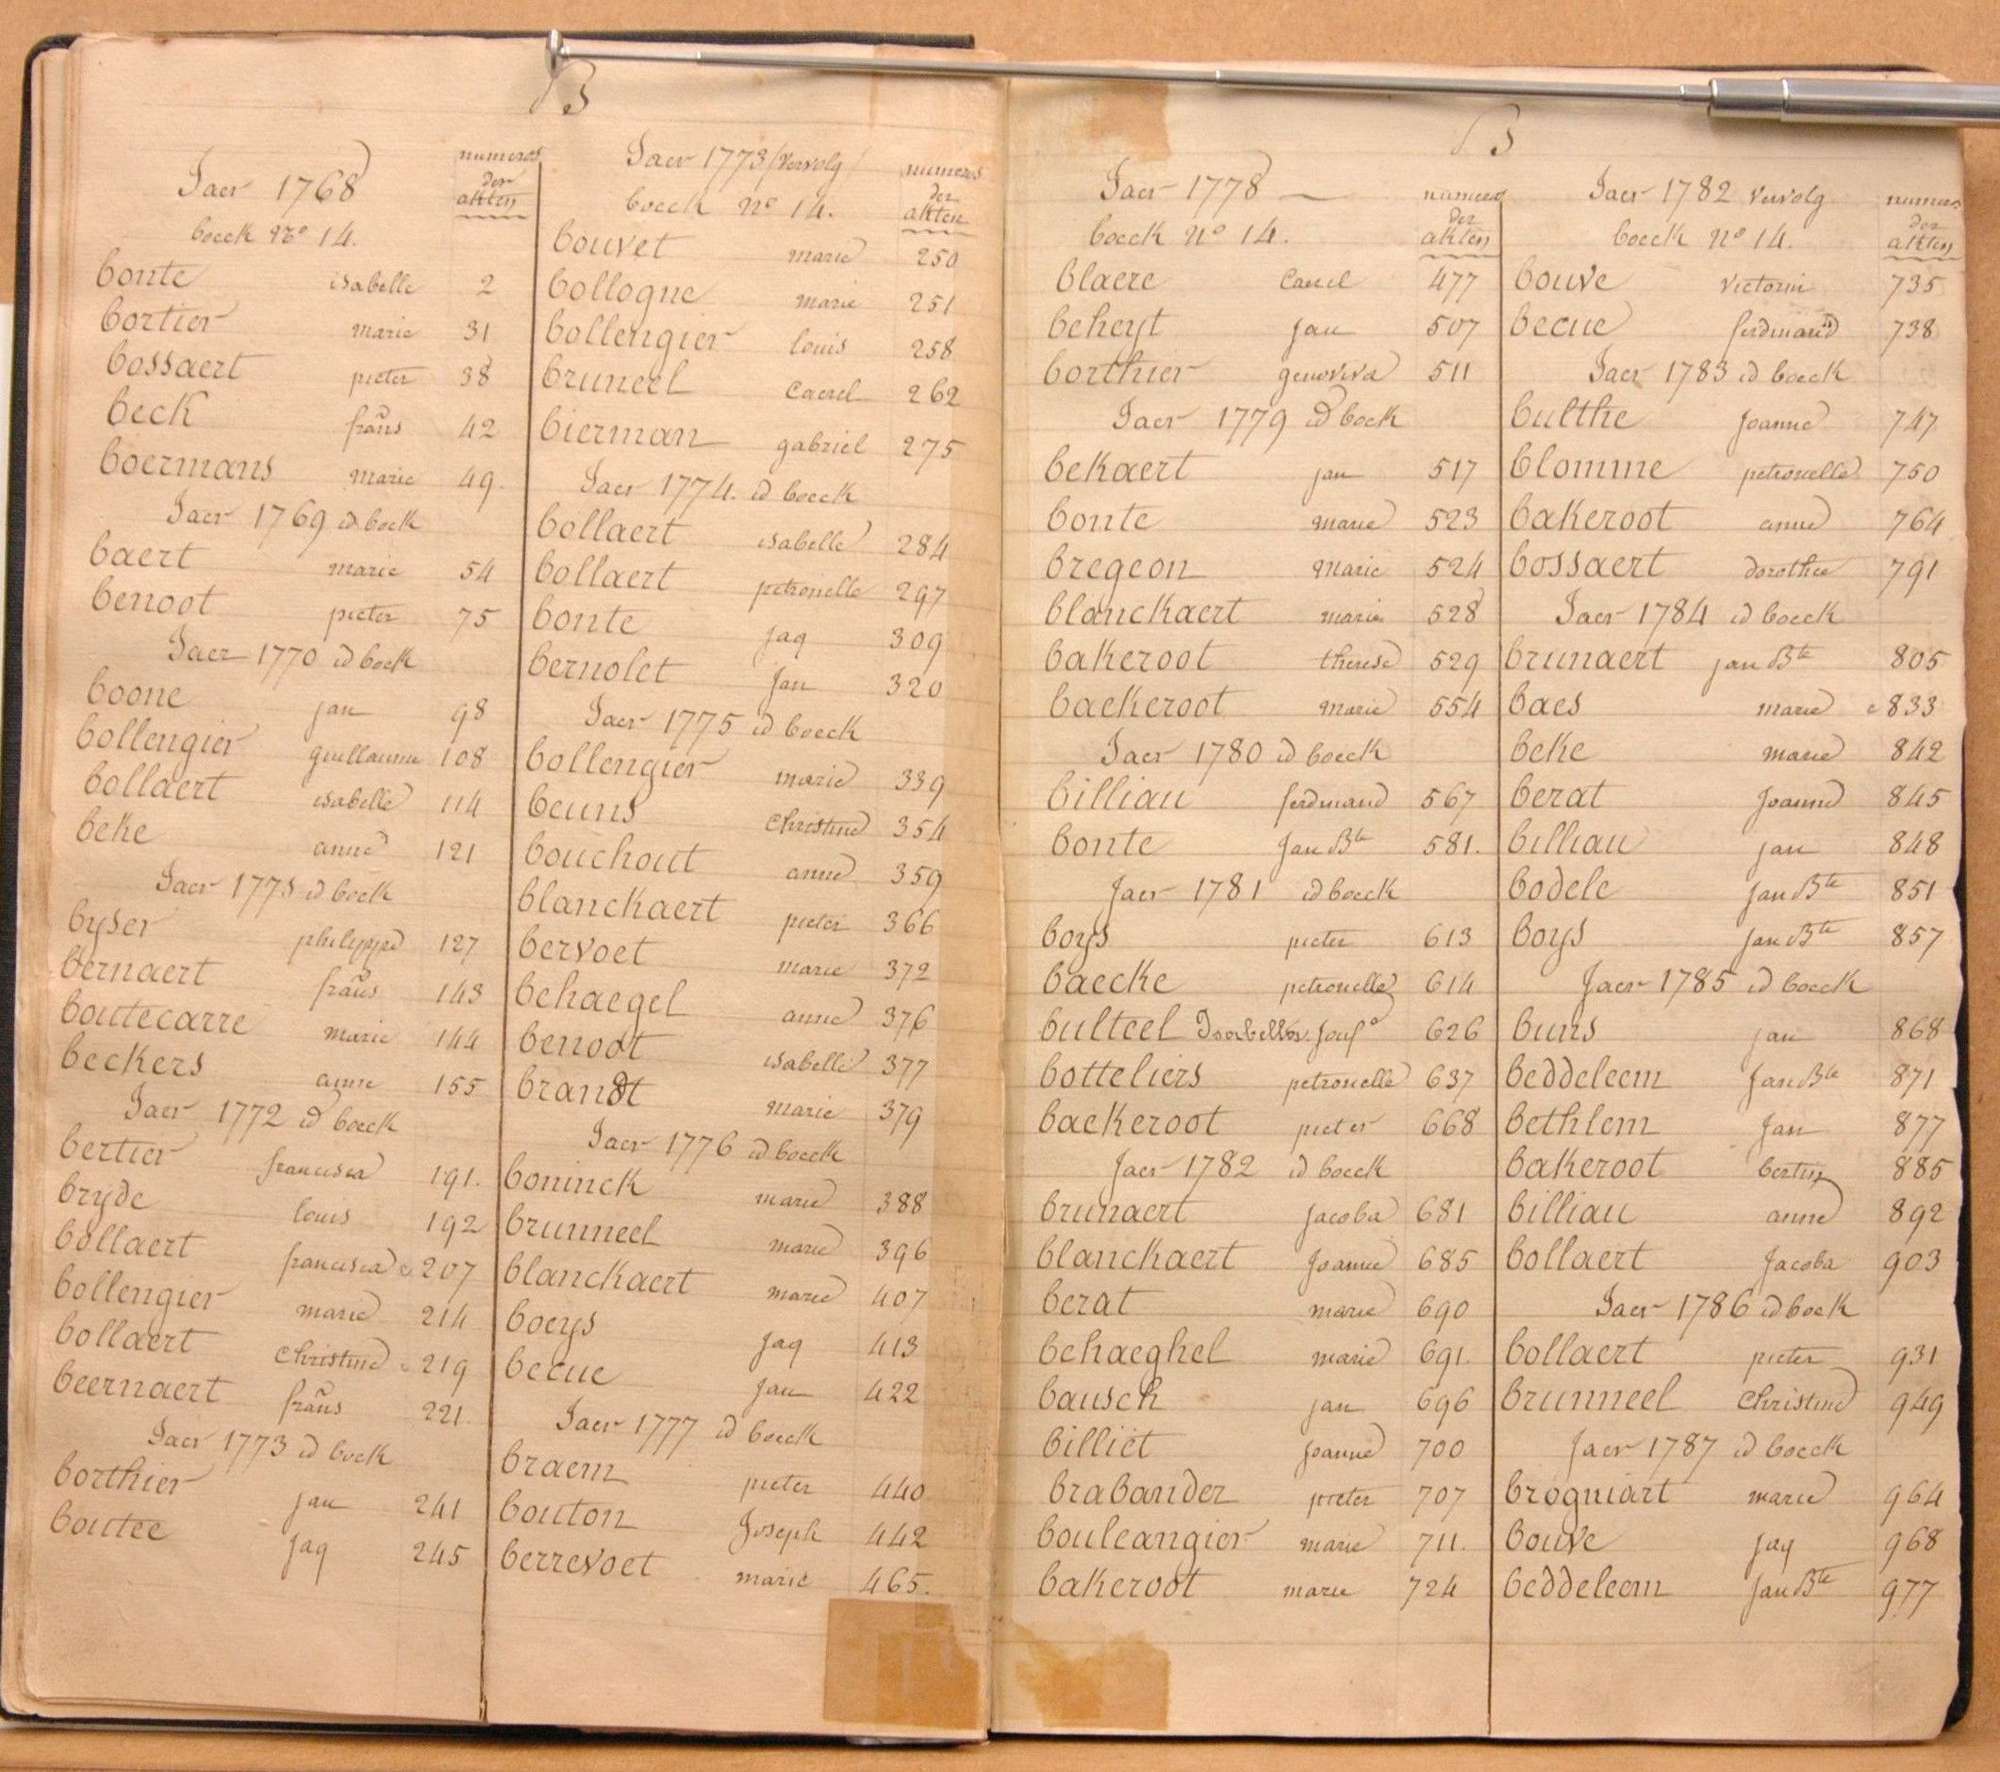 B
Jaer 1768
numeros der akten
boeck No 14.
bonte isabelle 2
bortier marie 31
bossaert pieter 38
beck frans 42
boermans marie 49.
Jaer 1769 id boek
baert marie 54
benoot pieter 75
Jaer 1770 id boek
boone jan 98
bollengier guillaume 108
bollaert isabelle 114
beke anne 121
Jaer 1771 id boek
byser philippe 127
bernaert frans 143
boutecarre marie 144
beckers anne 155
Jaer 1772 id boeck
bertier francisca 191.
bryde louis 192
bollaert francisca 207
bollengier marie 214
bollaert Christine 219
beernaert frans 221.
Jaer 1773 id boek
borthier jan 241
boutee jaq 245
Jaer 1773 / vervolg /
numeros der akten
boeck No 14.
bouvet marie 250
bollogne marie 251
bollengier louis 258
bruneel Caerel 262
bierman gabriel 275
Jaer 1774. id boeck
bollaert isabelle 284
bollaert petronelle 297
bonte jaq 309
bernolet jan 320
Jaer 1775 id boeck
bollengier marie 339
beuns Christine 354
bouchout anne 359
blanckaert pieter 366
bervoet marie 372
behaegel anne 376
benoot isabelle 377
brandt marie 379
Jaer 1776 id boeck
boninck marie 388
brunneel marie 396
blanckaert marie 407
boeys jaq 413
becue jan 422
Jaer 1777 id boeck
braem pieter 440
bouton Joseph 442
berrevoet marie 465.
B
Jaer 1778
numeros der akten
boeck No 14.
blaere Carel 477
beheyt jan 507
borthier genoviva 511
Jaer 1779 id boek
bekaert jan 517
bonte marie 523
bregeon marie 524
blanckaert marie 528
bakeroot therese 529
baekeroot marie 554
Jaer 1780 id boeck
billiau ferdinand 567
bonte Jan Bte 581.
Jaer 1781 id boeck
boys pieter 613
baecke petronelle 614
bulteel Isabella. Jouf° 626
botteliers petronelle 637
baekeroot pieter 668
Jaer 1782 id boeck
brunaert jacoba 681
blanckaert Joanne 685
berat marie 690
behaeghel marie 691.
bausch jan 696
billiet Joanne 700
brabander pieter 707
bouleangier marie 711.
bakeroot marie 724
Jaer 1782 vervolg
numeros der akten
boeck No 14.
bouve victorin 735
becue ferdinand 738
Jaer 1783 id boeck
bulthe Joanne 747
blomme petronelle 750
bakeroot anne 764
bossaert dorothee 791
Jaer 1784 id boeck
brunaert jan Bte 805
baes marie 833
beke marie 842
berat Joanne 845
billiau jan 848
bodele jan Bte 851
boys Jan Bte 857
Jaer 1785 id boeck
buns jan 868
beddeleem Jan Bte 871
bethlem Jan 877
bakeroot bertin 885
billiau anne 892
bollaert Jacoba 903
Jaer 1786 id boek
bollaert pieter 931
brunneel Christine 949
Jaer 1787 id boeck
brogniart marie 964
bouve jaq 968
beddeleem Jan Bte 977